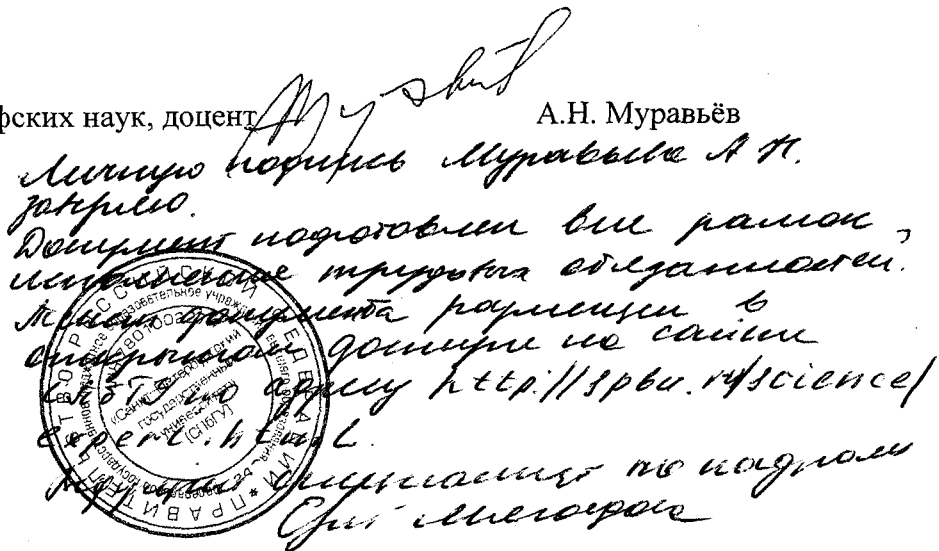 фских наук, доцент А.Н. Муравьёв
Личную подпись Муравьева А.Н.
заверяю.
Документ подготовлен вне рамок
исполнения трудовых обязанностей.
Текст документа размещен в
открытом доступе на сайте
СПбГУ по адресу http://spbu.ru/science/
expert.html.
специалист по кадрам
ПРАВИТЕЛЬСТВО РОССИЙСКОЙ ФЕДЕРАЦИИ
«Санкт-Петербургский
государственный
университет»
(СПбГУ)